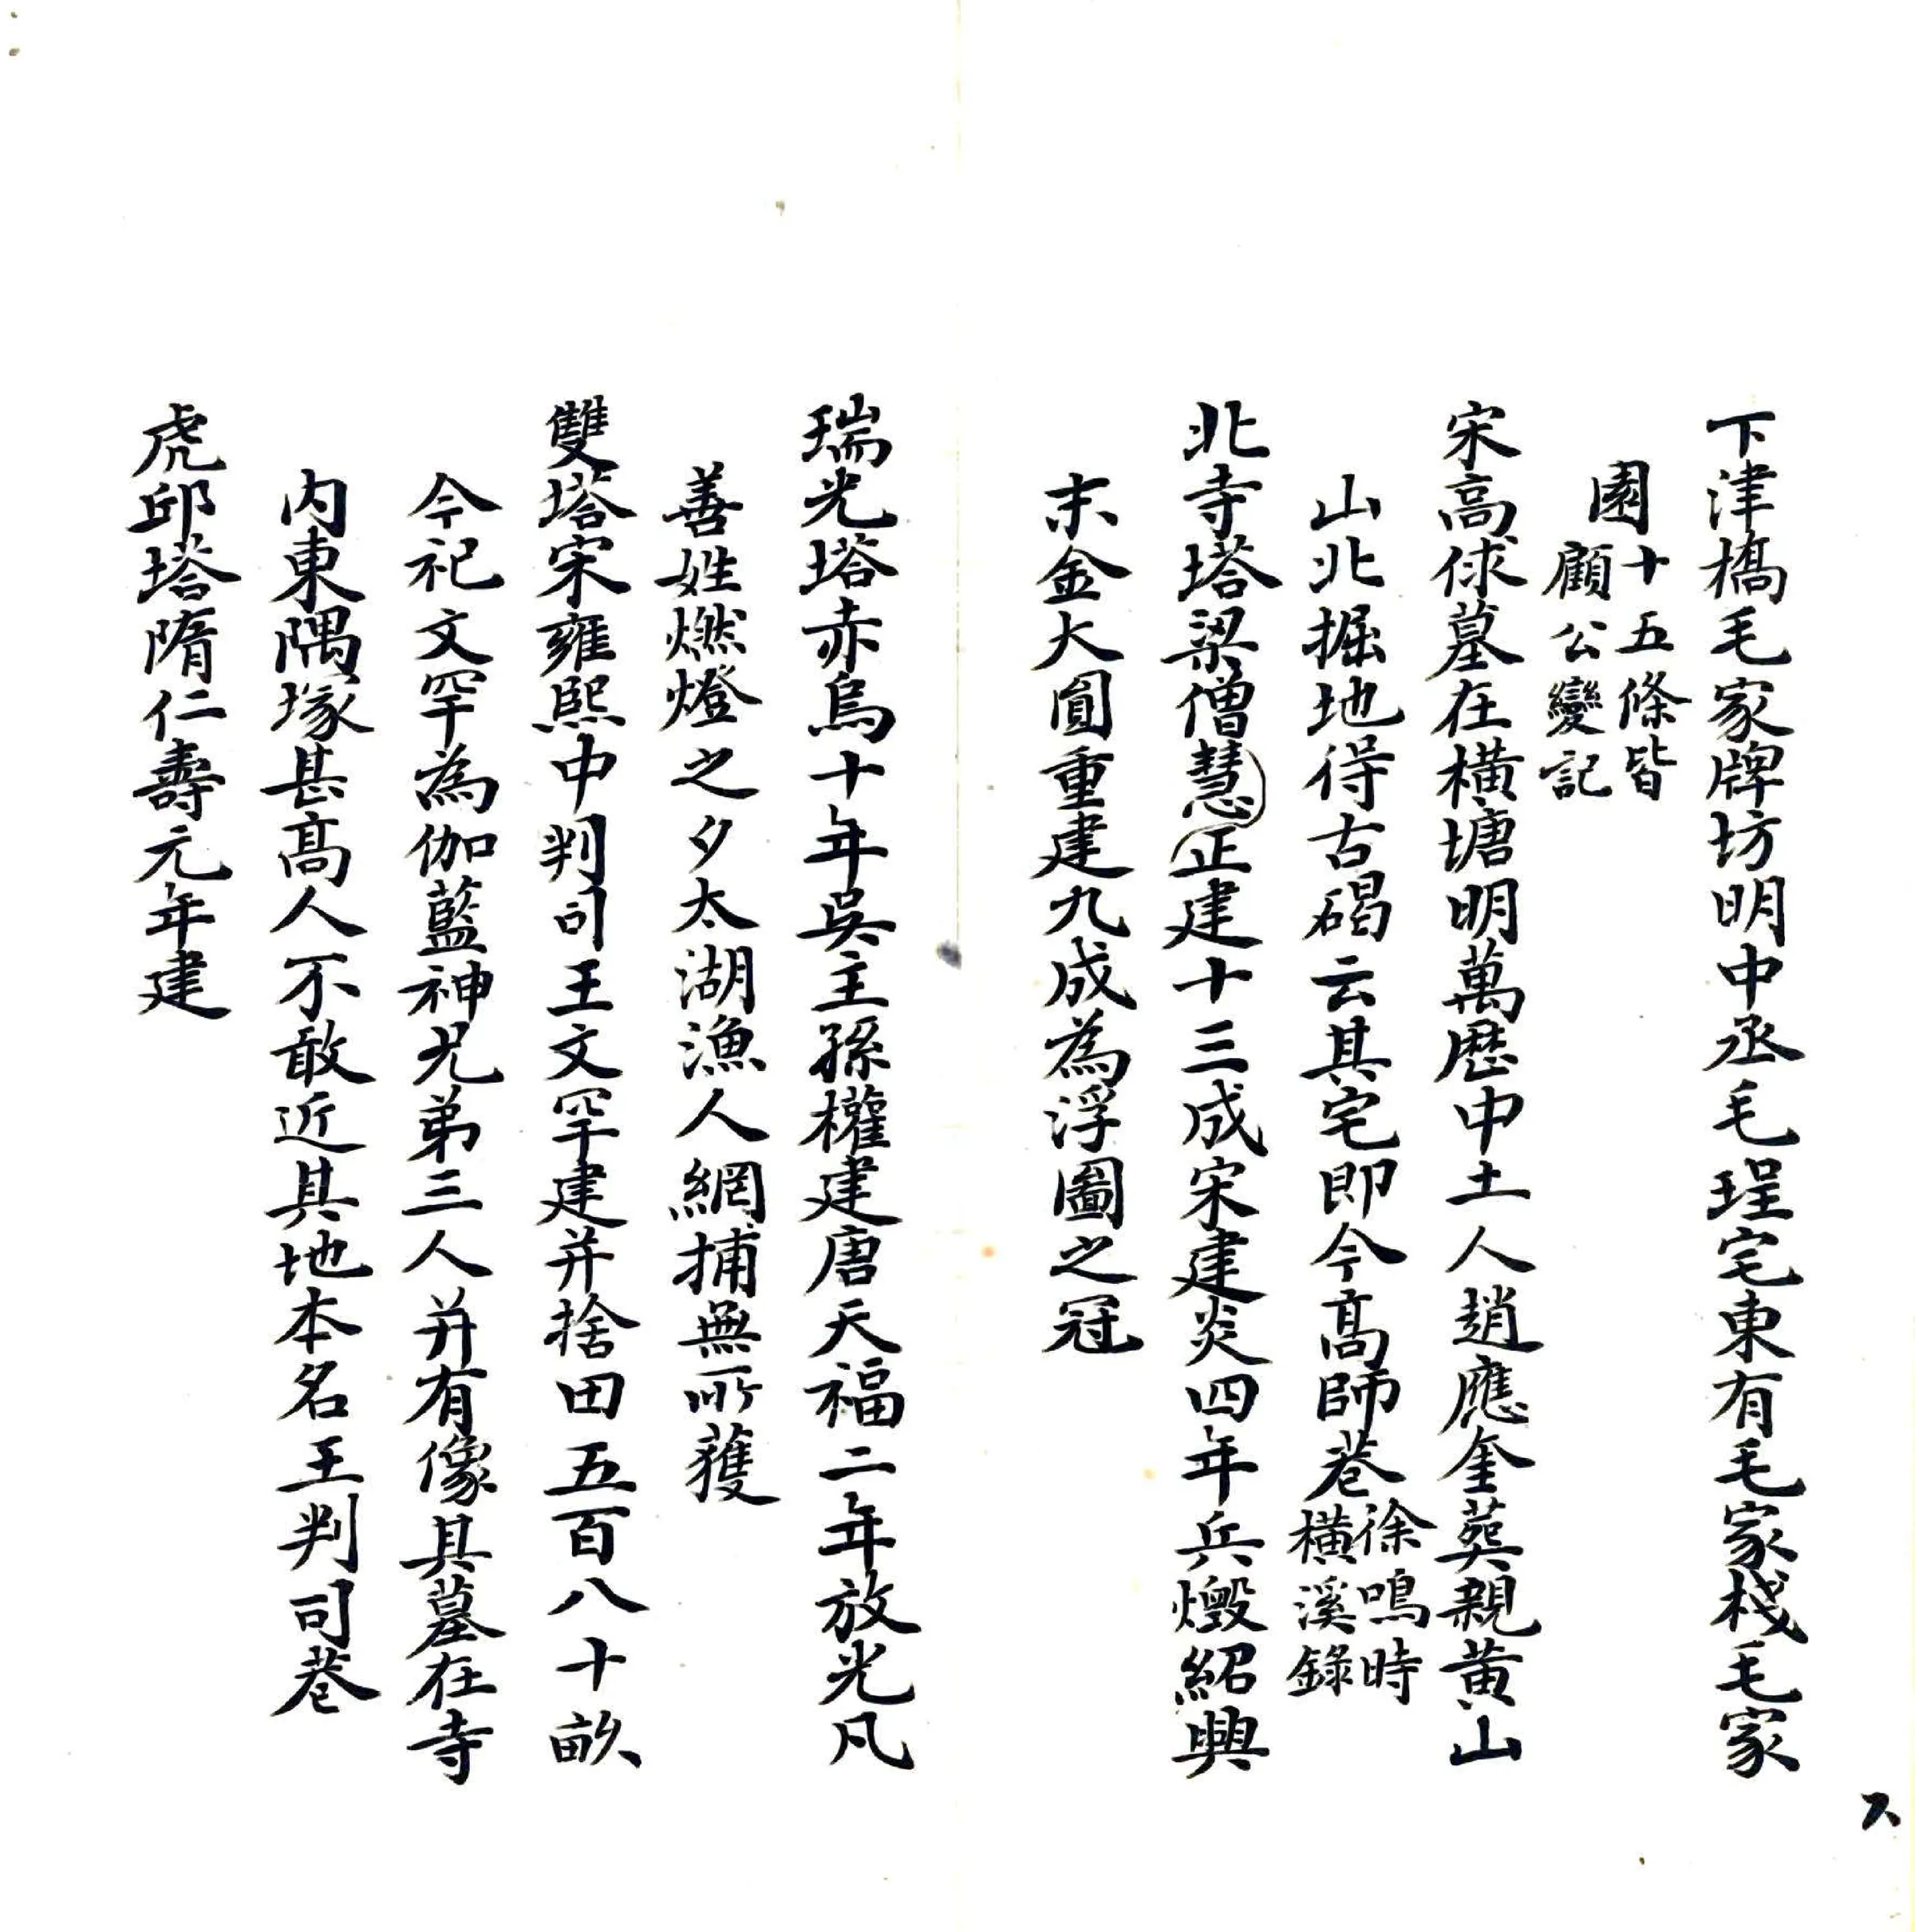 下津橋毛家牌坊明中丞毛珵宅東有毛家棧毛家
園十五條皆
顧公燮記
宋高俅墓在橫塘明萬厯中土人趙應奎葬親黃山
山北掘地得古碣云其宅即今高師巷徐鳴時
橫溪錄
北寺塔梁僧慧正建十三成宋建炎四年兵燬紹興
末金大圓重建九成為浮圖之冠
瑞光塔赤烏十年吳主孫權建唐天福二年放光凡
善姓燃燈之夕太湖漁人網捕無所獲
雙塔宋雍熙中判司王文罕建并捨田五百八十畝
今祀文罕為伽藍神兄弟三人并有像其墓在寺
內東隅塚甚高人不敢近其地本名王判司巷
虎邱塔隋仁壽元年建